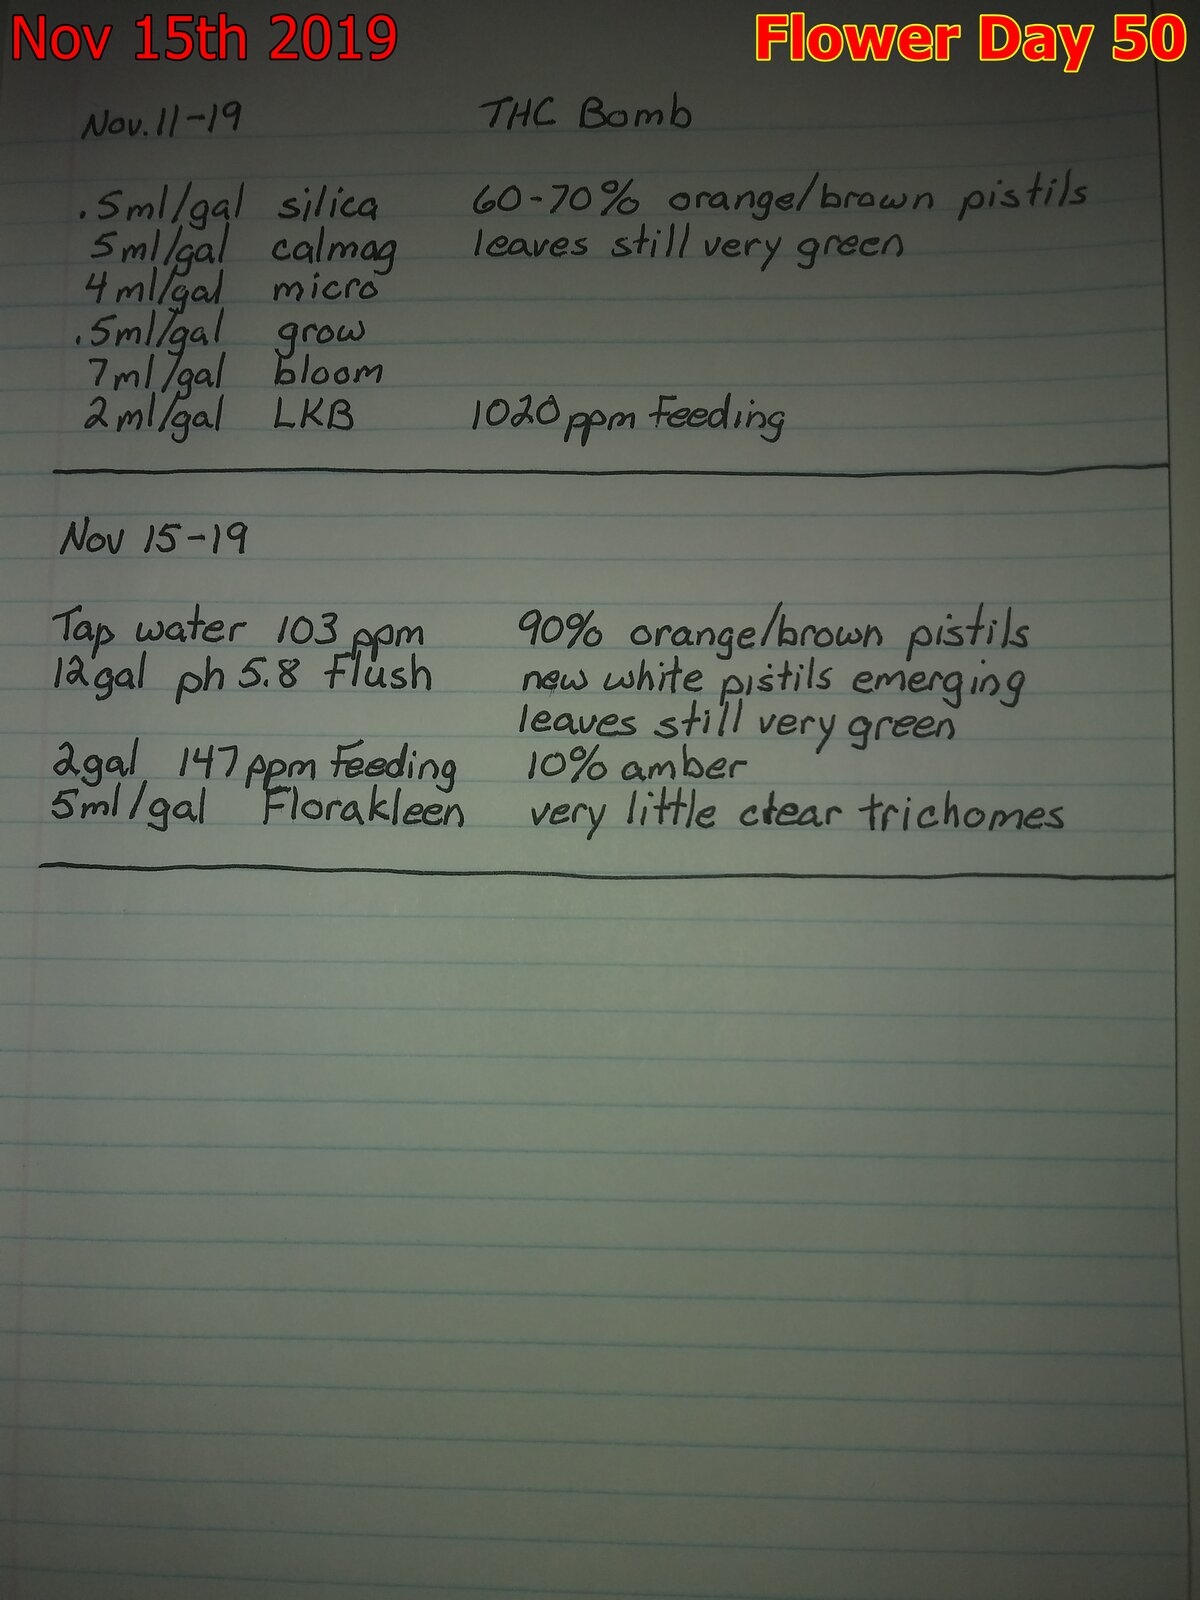 Nov 15th 2019 Flower Day 50
Nov. 11-19 THC Bomb
.5ml/gal silica 60-70% orange/brown pistils
5ml/gal calmag leaves still very green
4ml/gal micro
.5ml/gal grow
7ml/gal bloom
2ml/gal LKB 1020 ppm Feeding
Nov 15-19
Tap water 103 ppm 90% orange/brown pistils
12gal ph 5.8 Flush new white pistils emerging
leaves still very green
2gal 147 ppm Feeding 10% amber
5ml/gal Florakleen very little clear trichomes